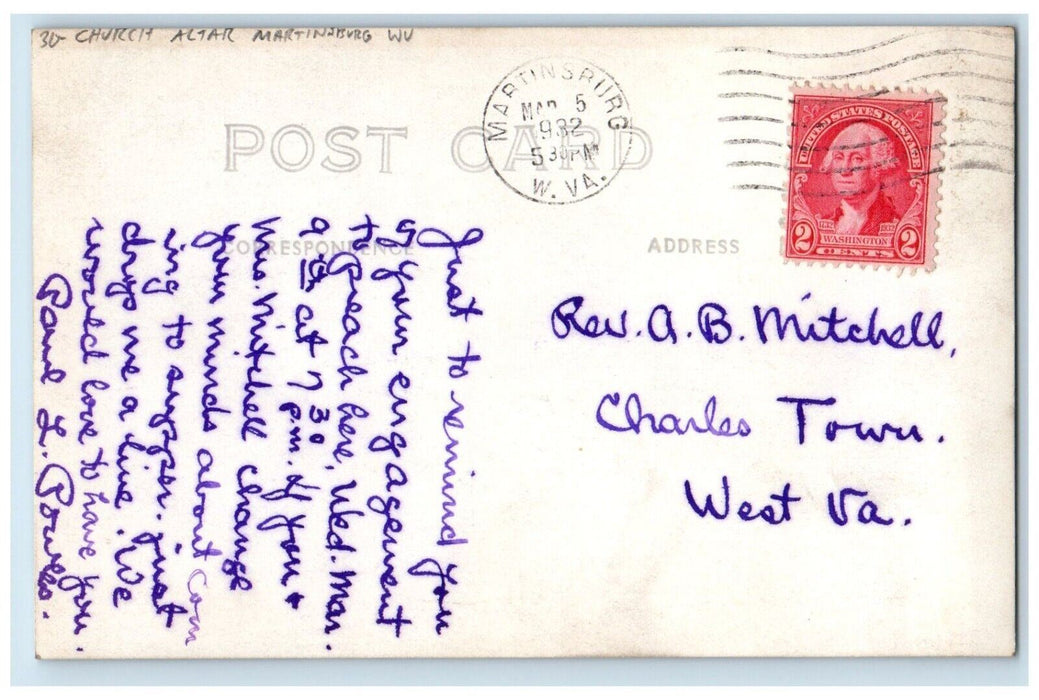 30- CHURCH ALTAR MARTINSBURG WV
MARTINSBURG
MAR 5
1932
5 30 PM
W. VA.
UNITED STATES POSTAGE
1732 1932
WASHINGTON
2 2
CENTS
POST CARD
CORRESPONDENCE
ADDRESS
Just to remind you
of your engagement
to preach here, Wed. Mar.
9th at 7 30 p.m. If you +
Mrs. Mitchell change
your minds about com
ing to supper, just
drop me a line. We
would love to have you.
Paul L. Powles.
Rev. A. B. Mitchell,
Charles Town.
West Va.